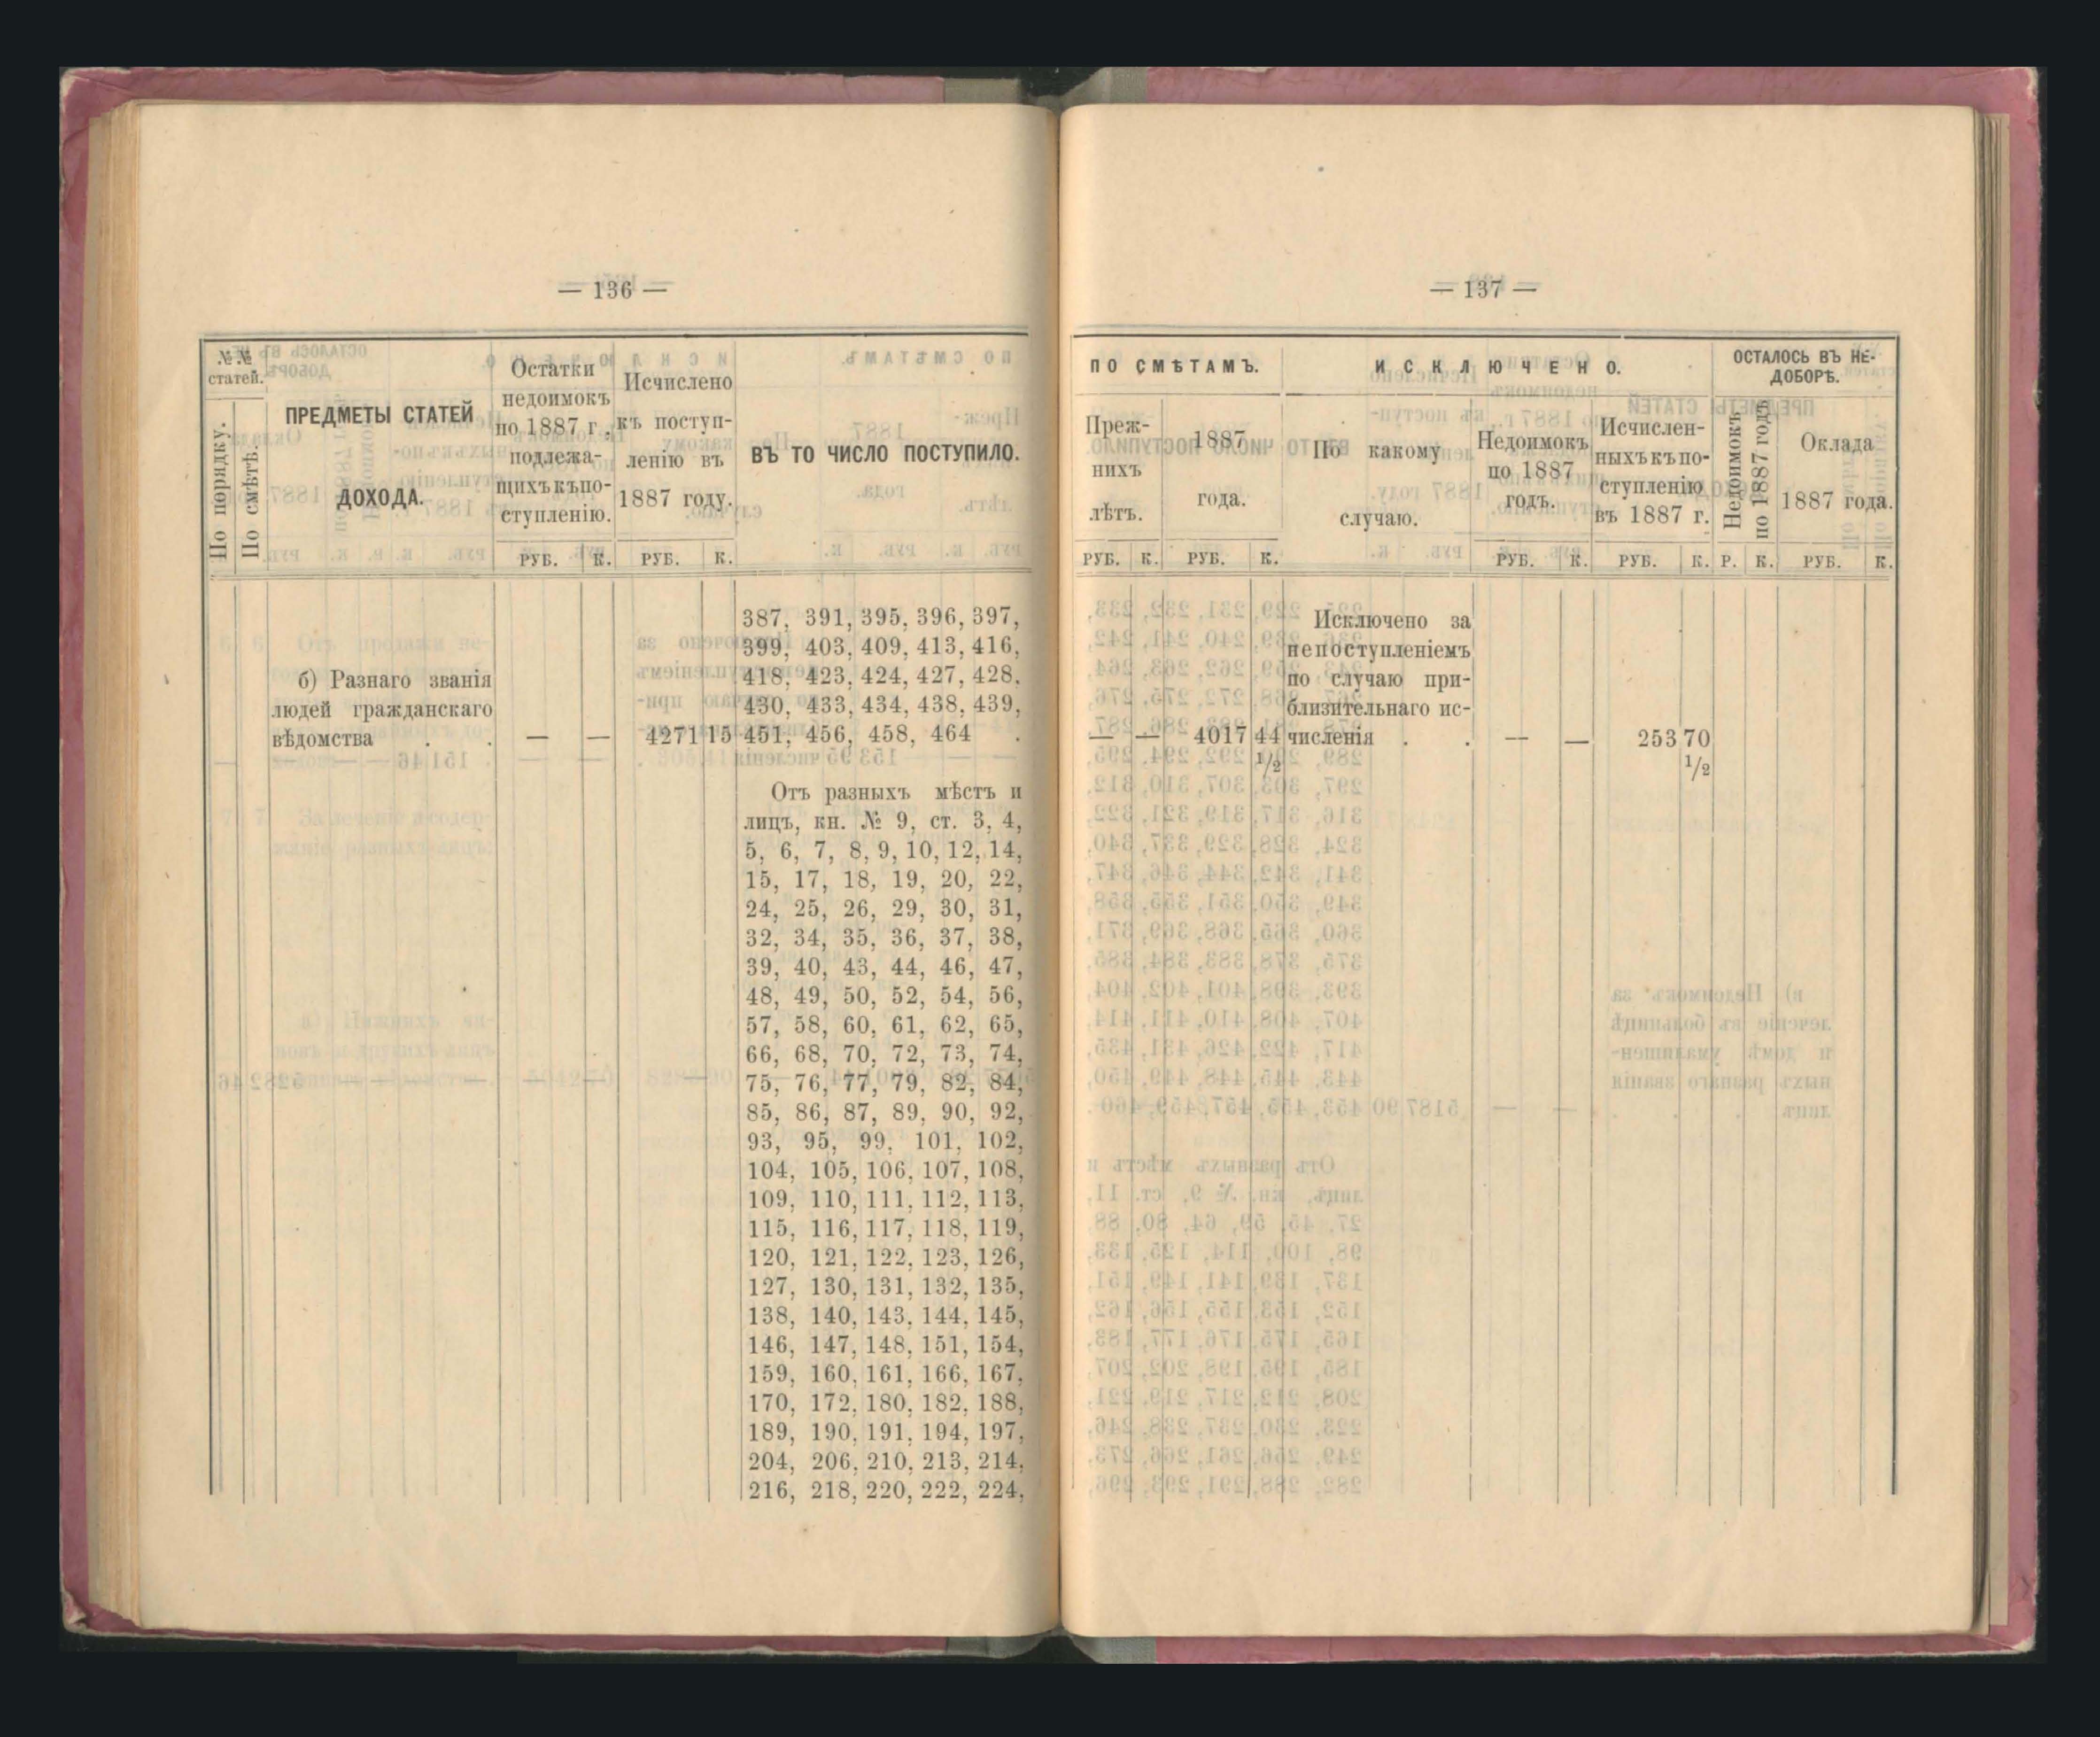 — 136 —
№№
статей.
По порядку.
По смѣтѣ.
ПРЕДМЕТЫ СТАТЕЙ
ДОХОДА.
Остатки
недоимокъ
по 1887 г.
подлежа-
щихъ къ по-
ступленію.
РУБ. К.
Исчислено
къ поступ-
ленію въ
1887 году.
РУБ. К.
ВЪ ТО ЧИСЛО ПОСТУПИЛО.
б) Разнаго званія
людей гражданскаго
вѣдомства . . — — 4271 15
387, 391, 395, 396, 397,
399, 403, 409, 413, 416,
418, 423, 424, 427, 428,
430, 433, 434, 438, 439,
451, 456, 458, 464 .
Отъ разныхъ мѣстъ и
лицъ, кн. № 9, ст. 3, 4,
5, 6, 7, 8, 9, 10, 12, 14,
15, 17, 18, 19, 20, 22,
24, 25, 26, 29, 30, 31,
32, 34, 35, 36, 37, 38,
39, 40, 43, 44, 46, 47,
48, 49, 50, 52, 54, 56,
57, 58, 60, 61, 62, 65,
66, 68, 70, 72, 73, 74,
75, 76, 77, 79, 82, 84,
85, 86, 87, 89, 90, 92,
93, 95, 99, 101, 102,
104, 105, 106, 107, 108,
109, 110, 111, 112, 113,
115, 116, 117, 118, 119,
120, 121, 122, 123, 126,
127, 130, 131, 132, 135,
138, 140, 143, 144, 145,
146, 147, 148, 151, 154,
159, 160, 161, 166, 167,
170, 172, 180, 182, 188,
189, 190, 191, 194, 197,
204, 206, 210, 213, 214,
216, 218, 220, 222, 224,
— 137 —
ПО СМѢТАМЪ.
Преж-
нихъ
лѣтъ.
РУБ. К.
1887
года.
РУБ. К.
ИСКЛЮЧЕНО.
По какому
случаю.
Недоимокъ
по 1887
годъ.
РУБ. К.
Исчислен-
ныхъ къ по-
ступленію
въ 1887 г.
РУБ. К.
ОСТАЛОСЬ ВЪ НЕ-
ДОБОРѢ.
Недоимокъ
по 1887 годъ
Р. К.
Оклада
1887 года.
РУБ. К.
— — 4017 44
1/2
Исключено за
непоступленіемъ
по случаю при-
близительнаго ис-
численія . . — — 253 70
1/2